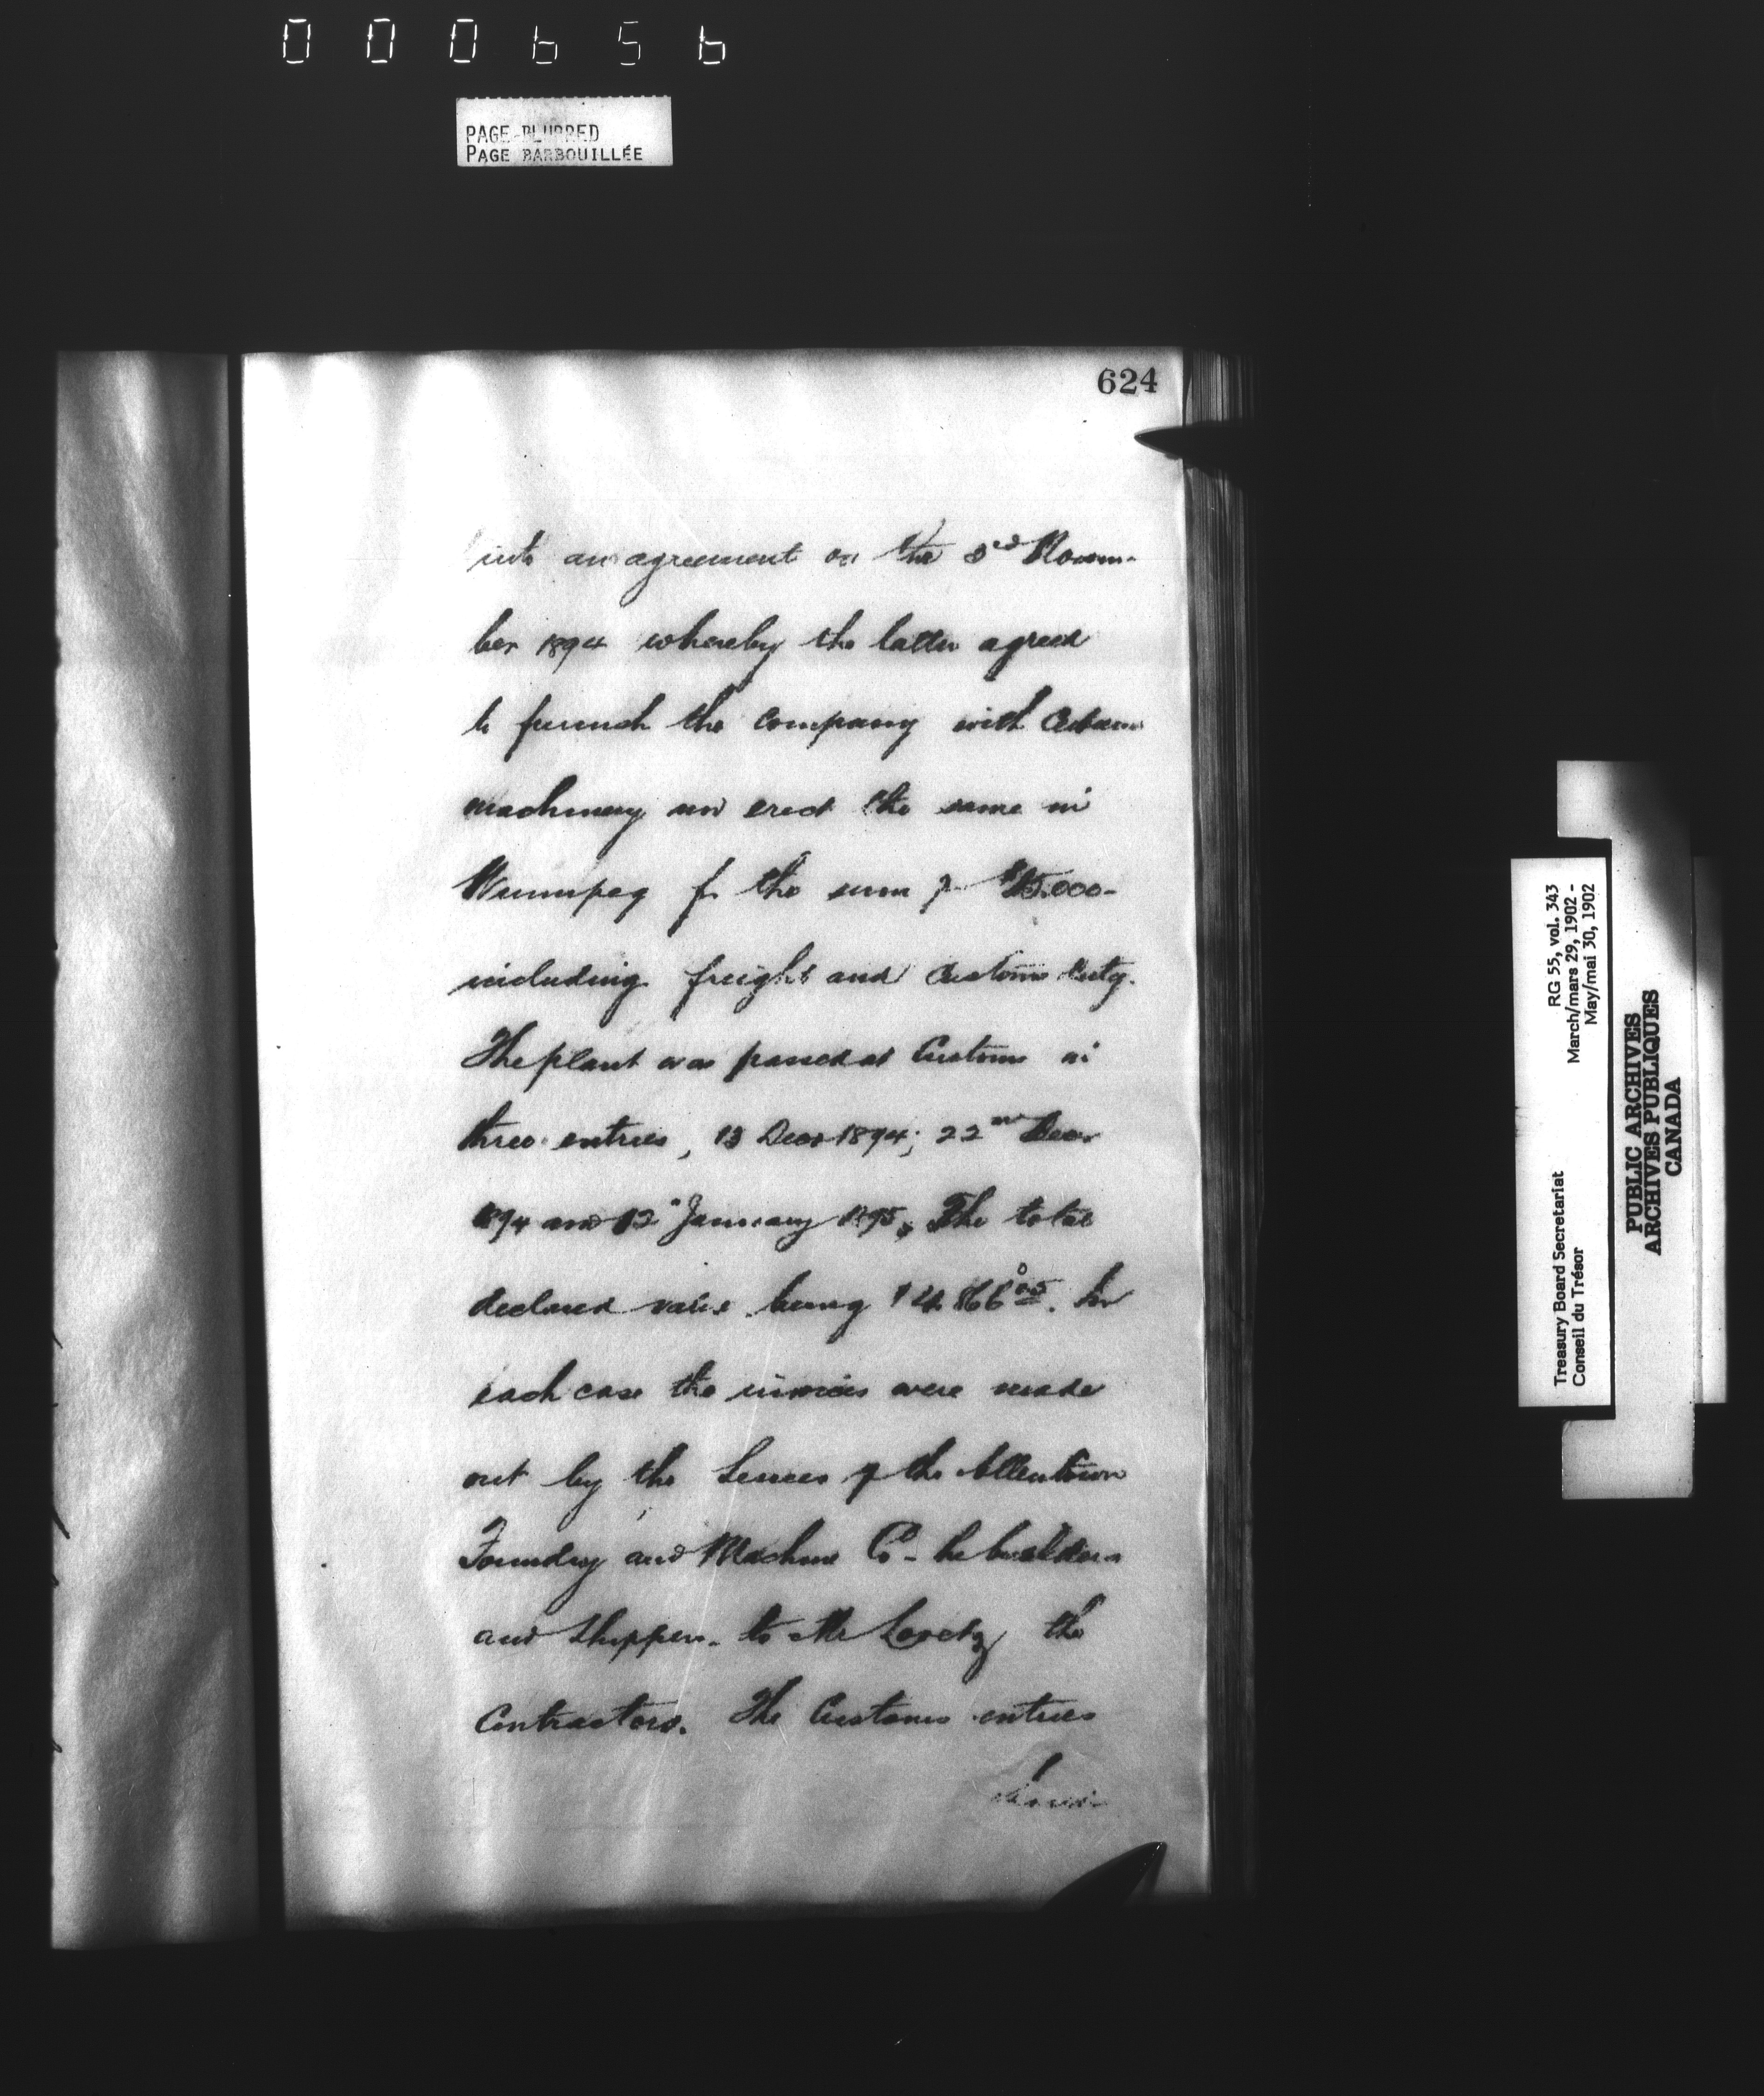 000656
PAGE BLURRED
PAGE BARBOUILLÉE
624
into an agreement on the 3rd Novem-
ber 1894 whereby the latter agreed
to furnish the Company with certain
machinery and erect the same in
Winnipeg for the sum of $15.000-
including freight and Customs duty.
The plant was passed at Customs in
three entries, 13 Decr 1894; 22nd Decr
1894 and 12" January 1895, The total
declared value being $4.866. In
each case the invoices were made
out by the Lessees of the Allentown
Foundry and Machine Co - the builders
and Shippers - to Mr the
Contractors. The Customs entries
RG 55, vol. 343
March/mars 29, 1902 -
May/mai 30, 1902
Treasury Board Secretariat
Conseil du Trésor
PUBLIC ARCHIVES
ARCHIVES PUBLIQUES
CANADA